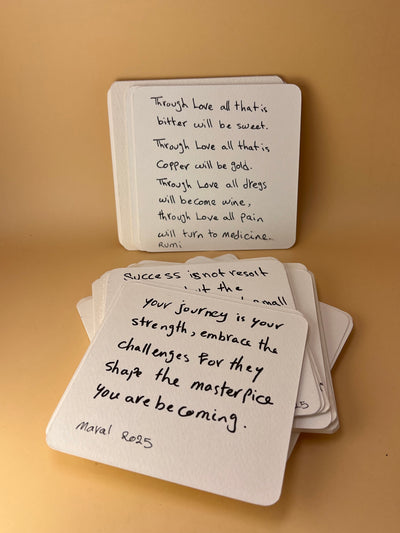 Through Love all that is
bitter will be sweet.
Through Love all that is
Copper will be gold.
Through Love all dregs
will become wine,
through Love all pain
will turn to medicine..
Rumi
Success is not result
the
small
your journey is your
strength, embrace the
challenges for they
shape the masterpice
you are becoming.
Maral 2025